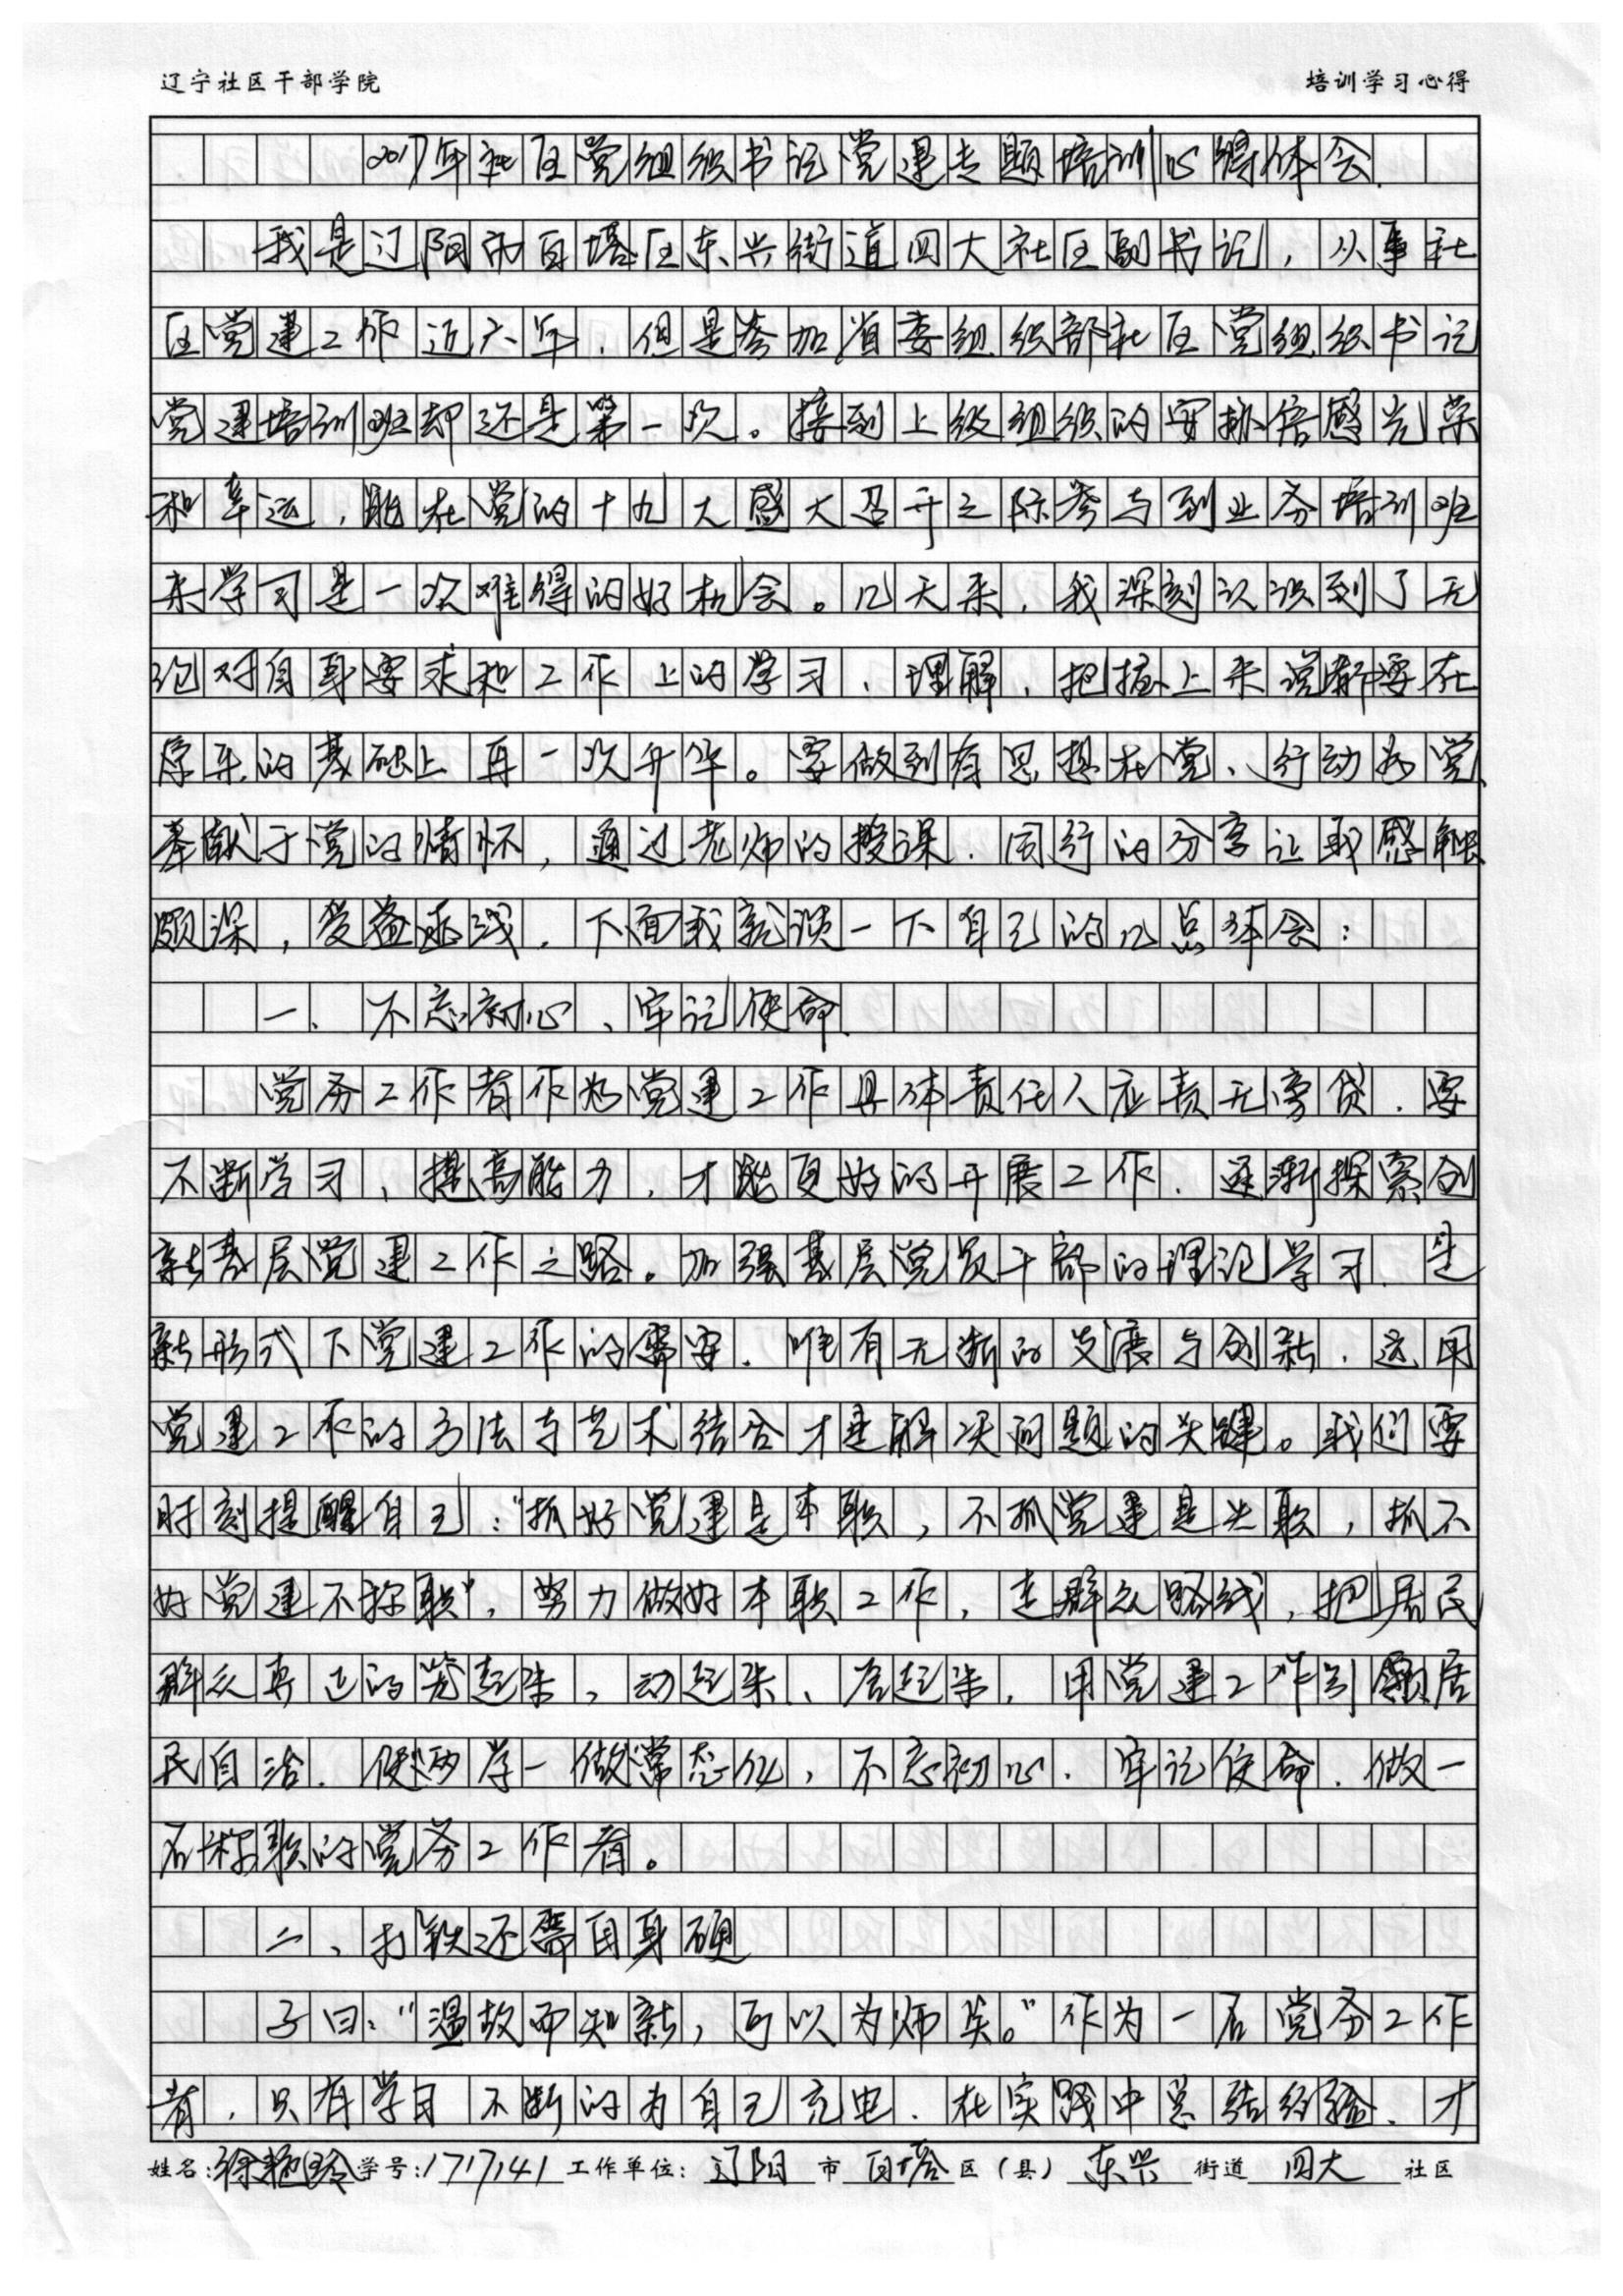 辽宁社区干部学院 培训学习心得
2017年社区党组织书记党建专题培训心得体会.
我是辽阳市白塔区东兴街道四大社区副书记，从事社
区党建工作近六年，但是参加省委组织部社区党组织书记
党建培训班却还是第一次。接到上级组织的安排倍感光荣
和幸运，能在党的十九大盛大召开之际参与到业务培训班
来学习是一次难得的好机会。几天来，我深刻认识到了无
论对自身要求和工作上的学习、理解、把握上来说都要在
原来的基础上再一次升华。要做到有思想在党、行动为党、
奉献于党的情怀，通过老师的授课、同行的分享让我感触
颇深，受益匪浅，下面我就谈一下自己的几点体会：
一、不忘初心、牢记使命.
党务工作者作为党建工作具体责任人应责无旁贷，要
不断学习、提高能力，才能更好的开展工作，逐渐探索创
新基层党建工作之路。加强基层党员干部的理论学习，是
新形式下党建工作的需要，唯有无断的发展与创新，运用
党建工作的方法与艺术结合才是解决问题的关键。我们要
时刻提醒自己：“抓好党建是本职，不抓党建是失职，抓不
好党建不称职”，努力做好本职工作，走群众路线，把居民
群众真正的凳起来，动起来、活起来，用党建工作引领居
民自治，使两学一做常态化，不忘初心、牢记使命，做一
名称职的党务工作者。
二、打铁还需自身硬
子曰：“温故而知新，可以为师矣。”作为一名党务工作
者，只有学习不断的为自己充电，在实践中总结经验、才
姓名：徐艳玲 学号：1717141 工作单位：辽阳市白塔区（县）东兴街道四大社区